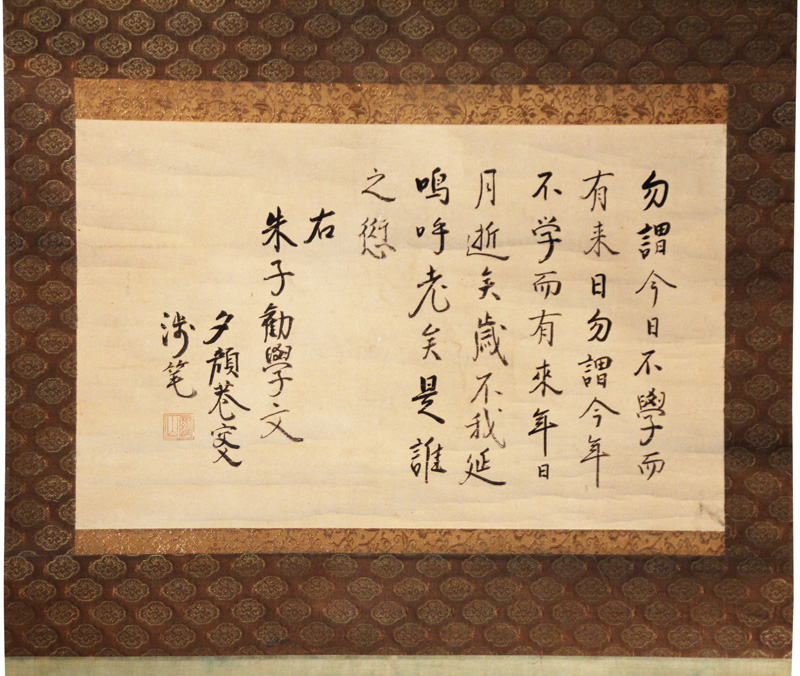 勿謂今日不學而
有来日勿謂今年
不学而有來年日
月逝矣歳不我延
嗚呼老矣是誰
之愆
右
朱子勧學文
夕顔巷叟
渉筆